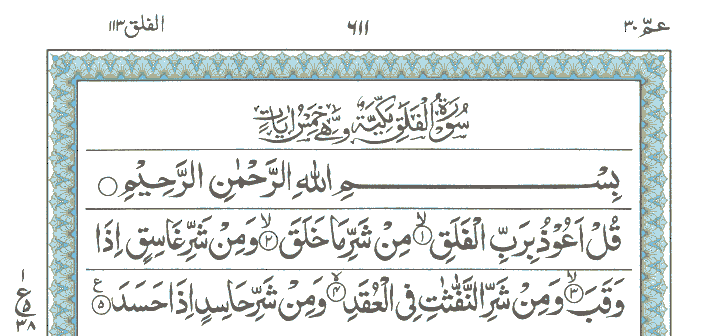 عمّ ٣٠
٦١١
الفلق ١١٣
سُوْرَةُ الْفَلَقِ مَكِّيَّةٌ وَّهِيَ خَمْسُ اٰيَاتٍ
بِسْــــــــــــــــــمِ اللهِ الرَّحْمٰنِ الرَّحِيْمِ ○
قُلْ اَعُوْذُ بِرَبِّ الْفَلَقِ ۙ﴿١﴾ مِنْ شَرِّ مَا خَلَقَ ۙ﴿٢﴾ وَمِنْ شَرِّ غَاسِقٍ اِذَا
وَقَبَ ۙ﴿٣﴾ وَمِنْ شَرِّ النَّفّٰثٰتِ فِى الْعُقَدِ ۙ﴿٤﴾ وَمِنْ شَرِّ حَاسِدٍ اِذَا حَسَدَ ﴿٥﴾ ع
١
ع
٥
٣٨